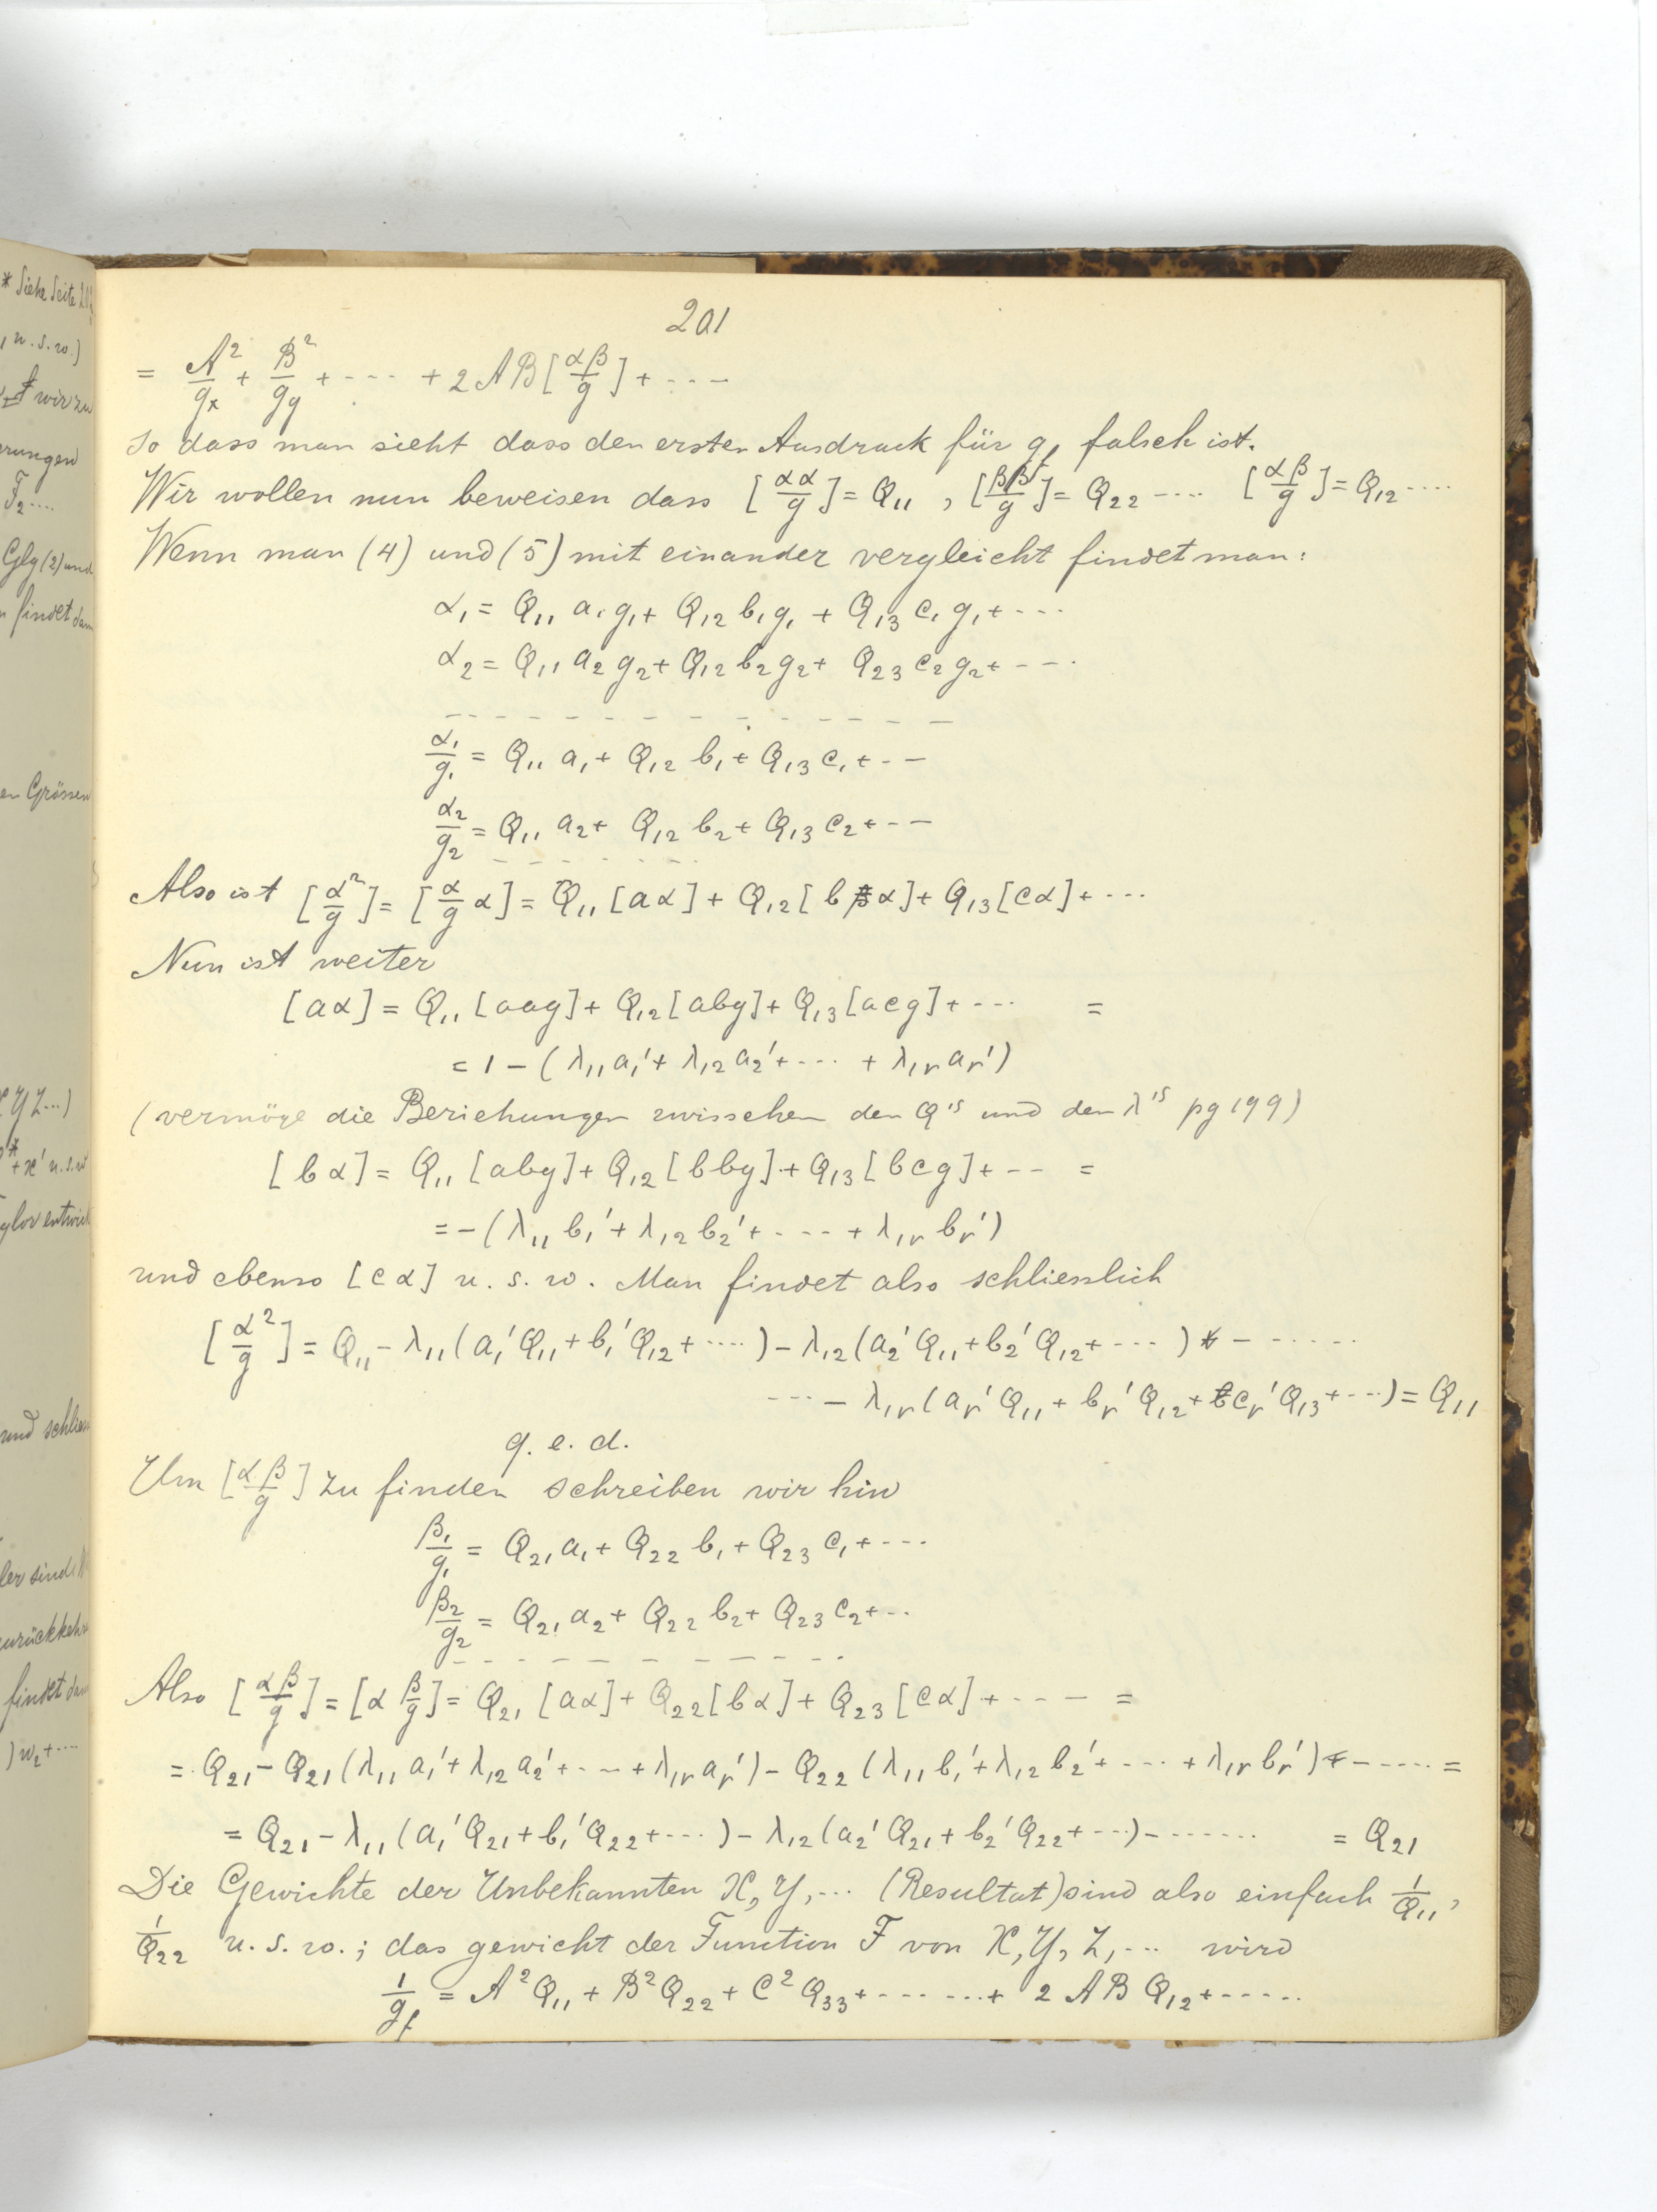 * Siehe Seite
, u. s. w.)
wir zu
rungen
F₂....
Glg (2) und
findet dan
en Grössen
X Y Z...)
+x' u.s.w
ylor entwick
und schlies
ler sind
zurückkehr
findet dan
)w₂+....
201
= A²/gₓ + B²/g_y + ---- + 2AB[αβ/g] + ----
So dass man sieht dass den ersten Ausdruck für g_f falsch ist.
Wir wollen nun beweisen dass [αα/g] = Q₁₁ , [ββ/g] = Q₂₂ ---- [αβ/g] = Q₁₂ ----
Wenn man (4) und (5) mit einander vergleicht findet man:
α₁ = Q₁₁ a₁ g₁ + Q₁₂ b₁ g₁ + Q₁₃ c₁ g₁ + ---
α₂ = Q₁₁ a₂ g₂ + Q₁₂ b₂ g₂ + Q₂₃ c₂ g₂ + ---
- - - - - - - - - - - - -
α₁/g₁ = Q₁₁ a₁ + Q₁₂ b₁ + Q₁₃ c₁ + ---
α₂/g₂ = Q₁₁ a₂ + Q₁₂ b₂ + Q₁₃ c₂ + ---
- - - - - - -
Also ist [α²/g] = [α/g α] = Q₁₁ [aα] + Q₁₂ [bα] + Q₁₃ [cα] + ---
Nun ist weiter
[aα] = Q₁₁ [aag] + Q₁₂ [abg] + Q₁₃ [acg] + --- =
= 1 - (λ₁₁ a₁' + λ₁₂ a₂' + ---- + λ₁ᵣ aᵣ')
(vermöge die Beziehungen zwisschen den Q'ˢ und den λ'ˢ pg 199)
[bα] = Q₁₁ [abg] + Q₁₂ [bbg] + Q₁₃ [bcg] + --- =
= - (λ₁₁ b₁' + λ₁₂ b₂' + ---- + λ₁ᵣ bᵣ')
und ebenso [cα] u. s. w. Man findet also schliesslich
[α²/g] = Q₁₁ - λ₁₁ (a₁' Q₁₁ + b₁' Q₁₂ + ----) - λ₁₂ (a₂' Q₁₁ + b₂' Q₁₂ + ----) - ------
---- - λ₁ᵣ (aᵣ' Q₁₁ + bᵣ' Q₁₂ + cᵣ' Q₁₃ + ---) = Q₁₁
q. e. d.
Um [αβ/g] zu finden schreiben wir hin
β₁/g₁ = Q₂₁ a₁ + Q₂₂ b₁ + Q₂₃ c₁ + ----
β₂/g₂ = Q₂₁ a₂ + Q₂₂ b₂ + Q₂₃ c₂ + ---
- - - - - - - - - - -
Also [αβ/g] = [α β/g] = Q₂₁ [aα] + Q₂₂ [bα] + Q₂₃ [cα] + ---- =
= Q₂₁ - Q₂₁ (λ₁₁ a₁' + λ₁₂ a₂' + ---- + λ₁ᵣ aᵣ') - Q₂₂ (λ₁₁ b₁' + λ₁₂ b₂' + ---- + λ₁ᵣ bᵣ') - ----- =
= Q₂₁ - λ₁₁ (a₁' Q₂₁ + b₁' Q₂₂ + ----) - λ₁₂ (a₂' Q₂₁ + b₂' Q₂₂ + ---) - ------- = Q₂₁
Die Gewichte der Unbekannten X, Y, ... (Resultat) sind also einfach 1/Q₁₁,
1/Q₂₂ u. s. w.; das gewicht der Function F von X, Y, Z, ... wird
1/g_f = A² Q₁₁ + B² Q₂₂ + C² Q₃₃ + ------- + 2 AB Q₁₂ + -----